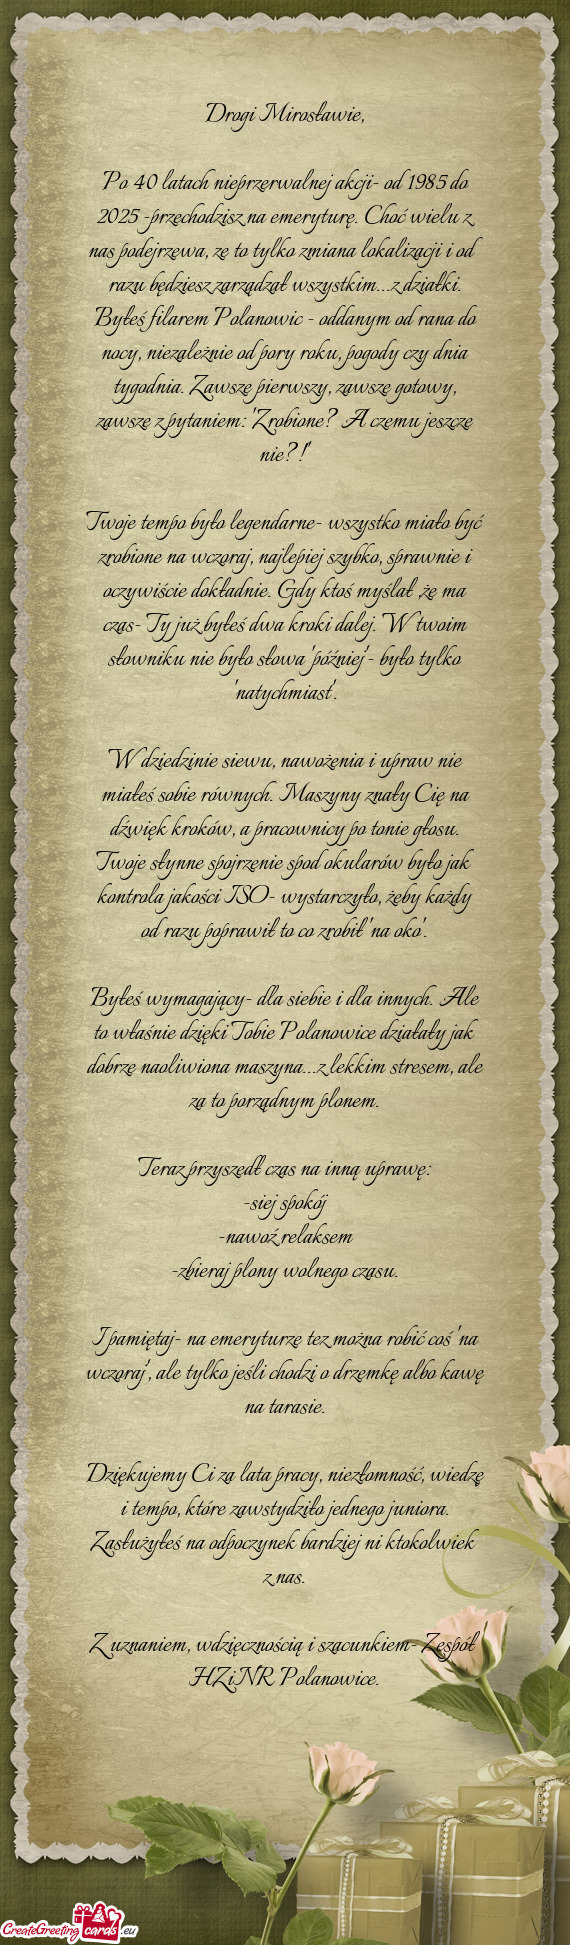 Drogi Mirosławie,
Po 40 latach nieprzerwalnej akcji- od 1985 do
2025 -przechodzisz na emeryturę. Choć wielu z
nas podejrzewa, ze to tylko zmiana lokalizacji i od
razu będziesz zarządzał wszystkim...z działki.
Byłeś filarem Polanowic - oddanym od rana do
nocy, niezależnie od pory roku, pogody czy dnia
tygodnia. Zawsze pierwszy, zawsze gotowy,
zawsze z pytaniem: 'Zrobione? A czemu jeszcze
nie?!'
Twoje tempo było legendarne- wszystko miało być
zrobione na wczoraj, najlepiej szybko, sprawnie i
oczywiście dokładnie. Gdy ktoś myślał, że ma
czas- Ty już byłeś dwa kroki dalej. W twoim
słowniku nie było słowa 'później'- było tylko
'natychmiast'.
W dziedzinie siewu, nawożenia i upraw nie
miałeś sobie równych. Maszyny znały Cię na
dźwięk kroków, a pracownicy po tonie głosu.
Twoje słynne spojrzenie spod okularów było jak
kontrola jakości ISO- wystarczyło, żeby każdy
od razu poprawił to co zrobił 'na oko'.
Byłeś wymagający- dla siebie i dla innych. Ale
to właśnie dzięki Tobie Polanowice działały jak
dobrze naoliwiona maszyna...z lekkim stresem, ale
za to porządnym plonem.
Teraz przyszedł czas na inną uprawę:
-siej spokój
-nawoź relaksem
-zbieraj plony wolnego czasu.
I pamiętaj- na emeryturze tez można robić coś 'na
wczoraj', ale tylko jeśli chodzi o drzemkę albo kawę
na tarasie.
Dziękujemy Ci za lata pracy, niezłomność, wiedzę
i tempo, które zawstydziło jednego juniora.
Zasłużyłeś na odpoczynek bardziej ni ktokolwiek
z nas.
Z uznaniem, wdzięcznością i szacunkiem- Zespół
HZiNR Polanowice.
CreateGreeting cards .eu